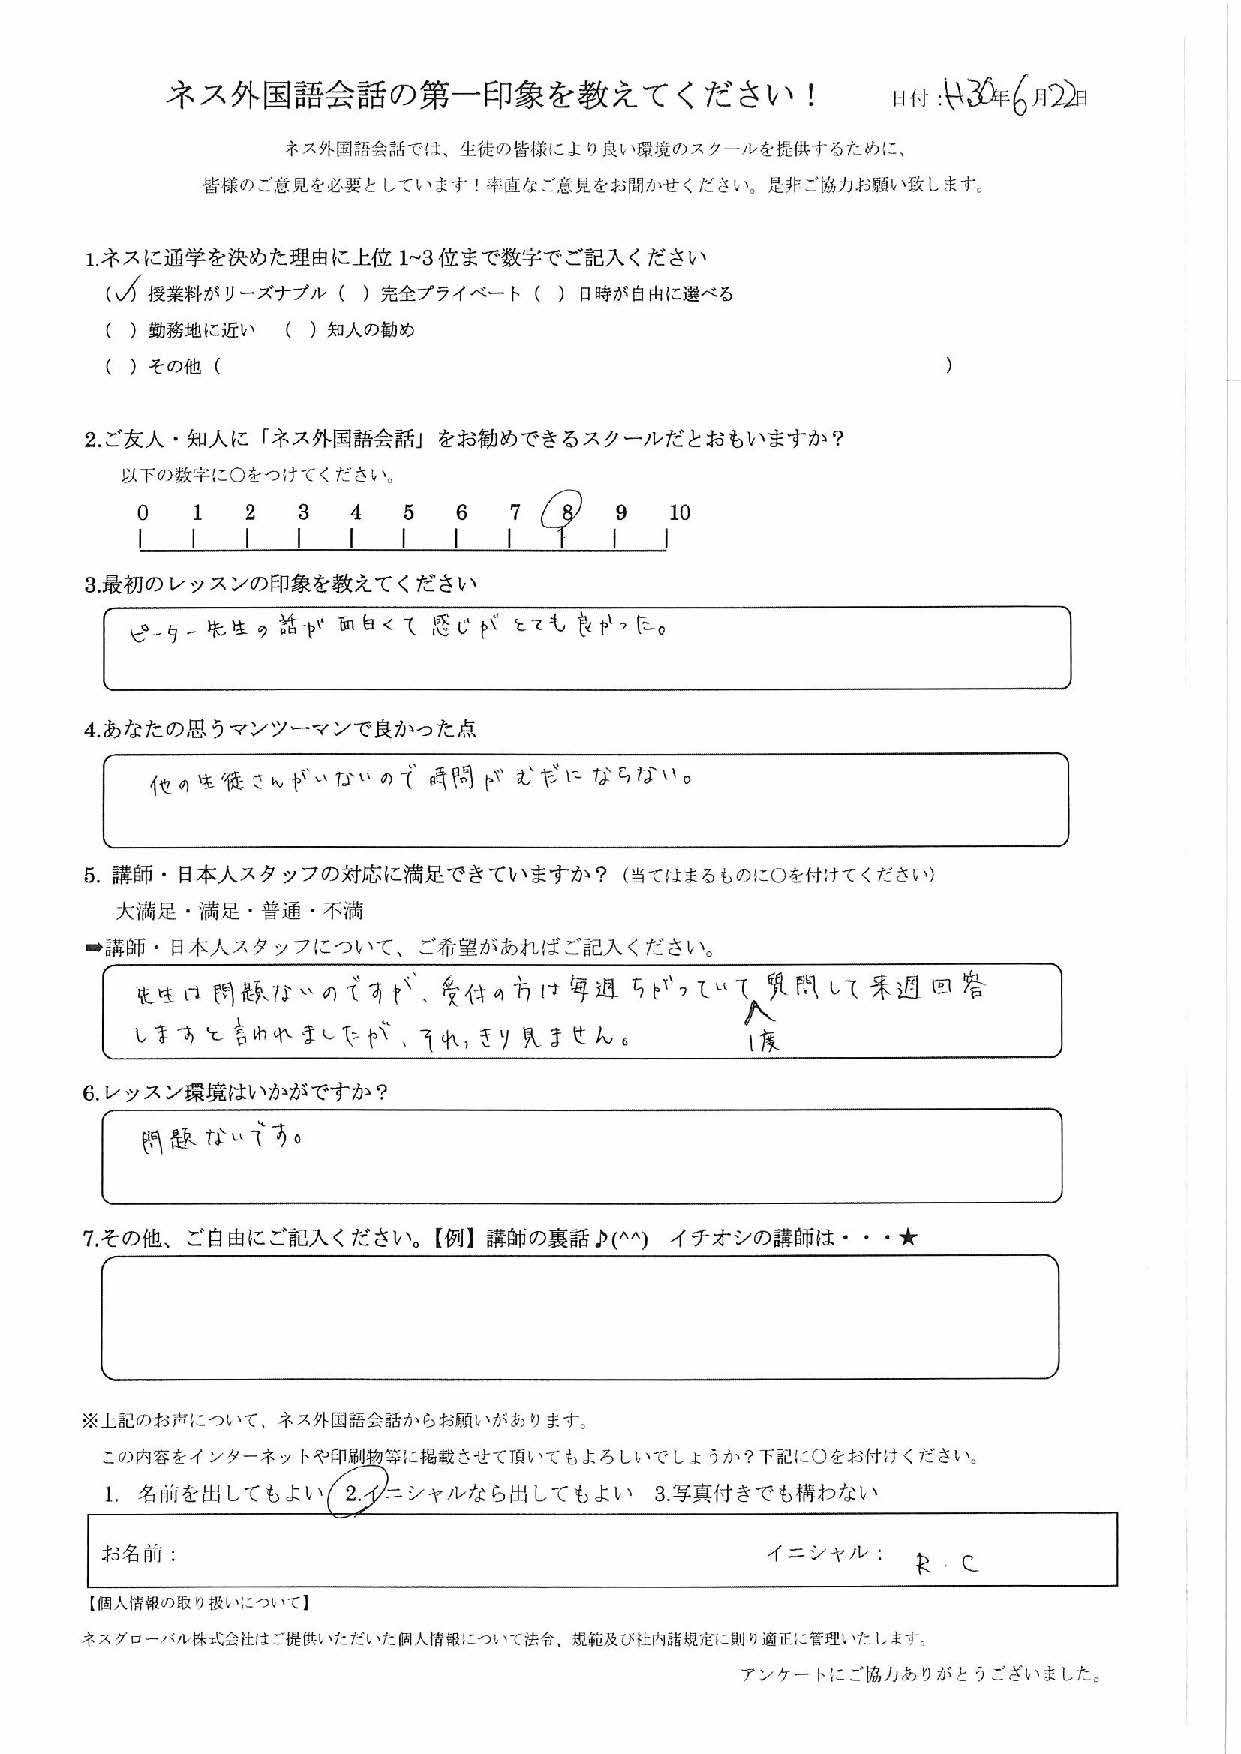 ネス外国語会話の第一印象を教えてください! 日付:H30年6月22日
ネス外国語会話では、生徒の皆様により良い環境のスクールを提供するために、
皆様のご意見を必要としています!率直なご意見をお聞かせください。是非ご協力お願い致します。
1.ネスに通学を決めた理由に上位1~3位まで数字でご記入ください
(✓) 授業料がリーズナブル ( ) 完全プライベート ( ) 日時が自由に選べる
( ) 勤務地に近い ( ) 知人の勧め
( ) その他 ( )
2.ご友人・知人に「ネス外国語会話」をお勧めできるスクールだとおもいますか?
以下の数字に○をつけてください。
0 1 2 3 4 5 6 7 8 9 10
3.最初のレッスンの印象を教えてください
ピーター先生の話が面白くて感じがとても良かった。
4.あなたの思うマンツーマンで良かった点
他の生徒さんがいないので時間がむだにならない。
5. 講師・日本人スタッフの対応に満足できていますか?(当てはまるものに○を付けてください)
大満足・満足・普通・不満
➡講師・日本人スタッフについて、ご希望があればご記入ください。
先生は問題ないのですが、受付の方は毎週ちがっていて1度質問して来週回答
しますと言われましたが、それっきり見ません。
6.レッスン環境はいかがですか?
問題ないです。
7.その他、ご自由にご記入ください。【例】講師の裏話♪(^^) イチオシの講師は・・・★
※上記のお声について、ネス外国語会話からお願いがあります。
この内容をインターネットや印刷物等に掲載させて頂いてもよろしいでしょうか?下記に○をお付けください。
1. 名前を出してもよい 2.イニシャルなら出してもよい 3.写真付きでも構わない
お名前: イニシャル: R.C
【個人情報の取り扱いについて】
ネスグローバル株式会社はご提供いただいた個人情報について法令、規範及び社内諸規定に則り適正に管理いたします。
アンケートにご協力ありがとうございました。